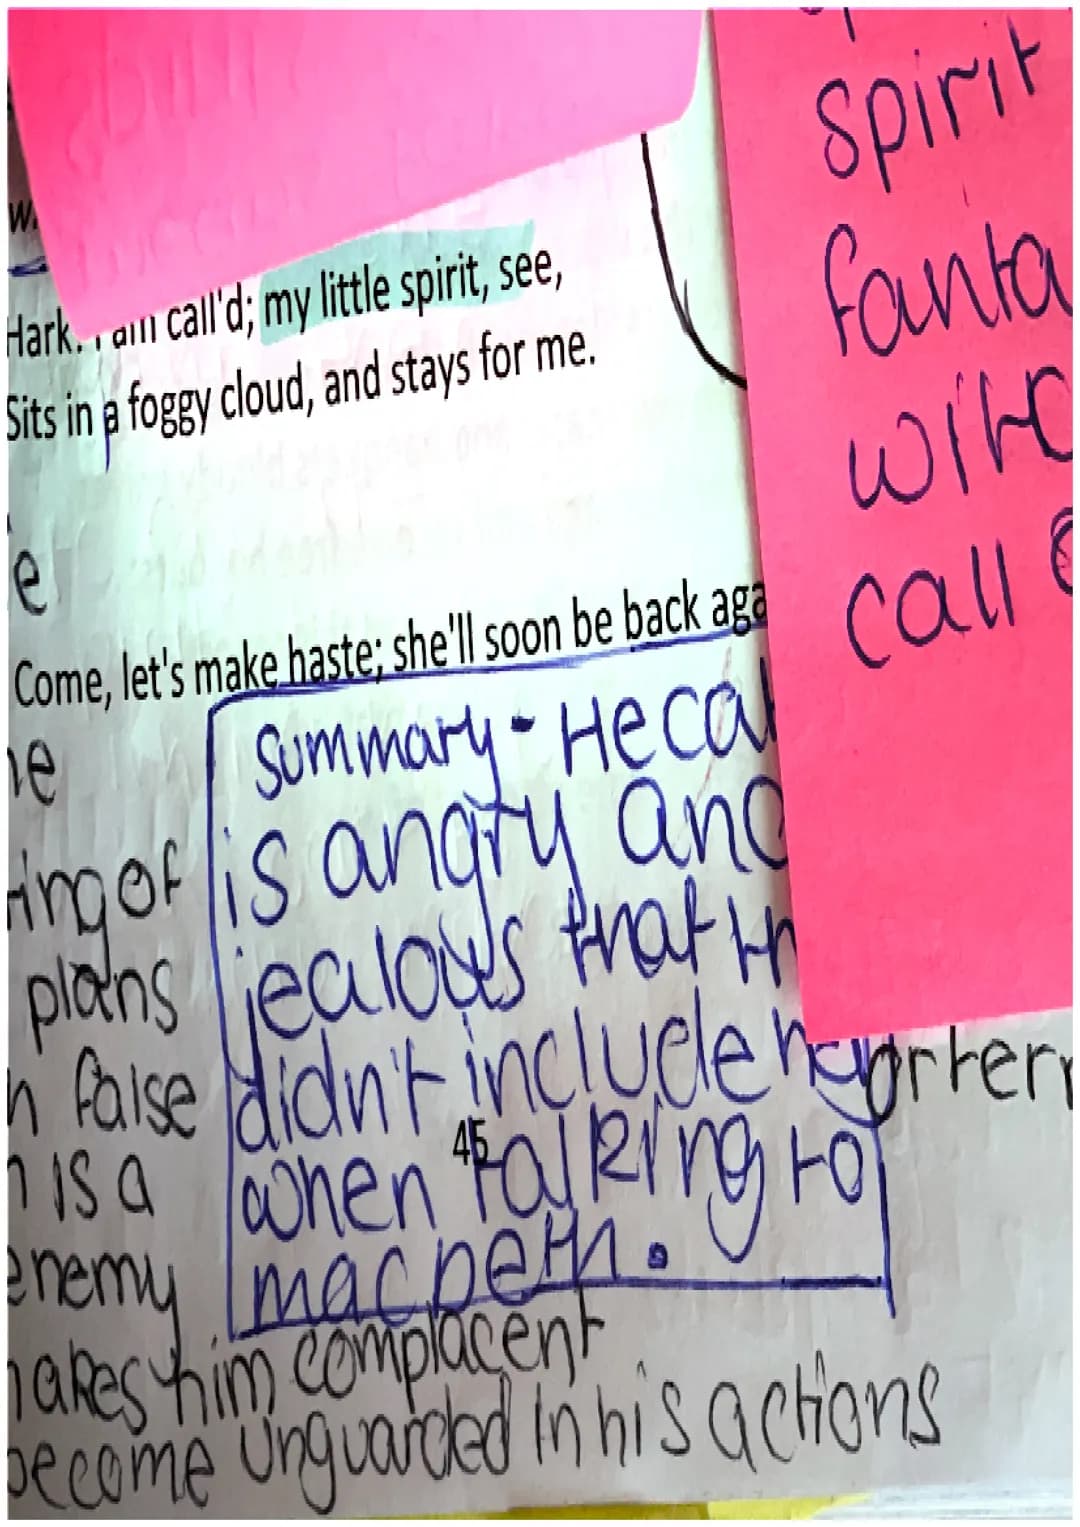 Hark! I am call'd; my little spirit, see,
Sits in a foggy cloud, and stays for me.
Come, let's make haste; she'll soon be back aga
summary - Heca
is angry and
jealous that th
didn't include her
when talking to
macbeth.
45
e
ne
ring of
plans
n false
n is a
enemy
makes him complacent
become unguarded in his actions
spirit
fanta
witc
call